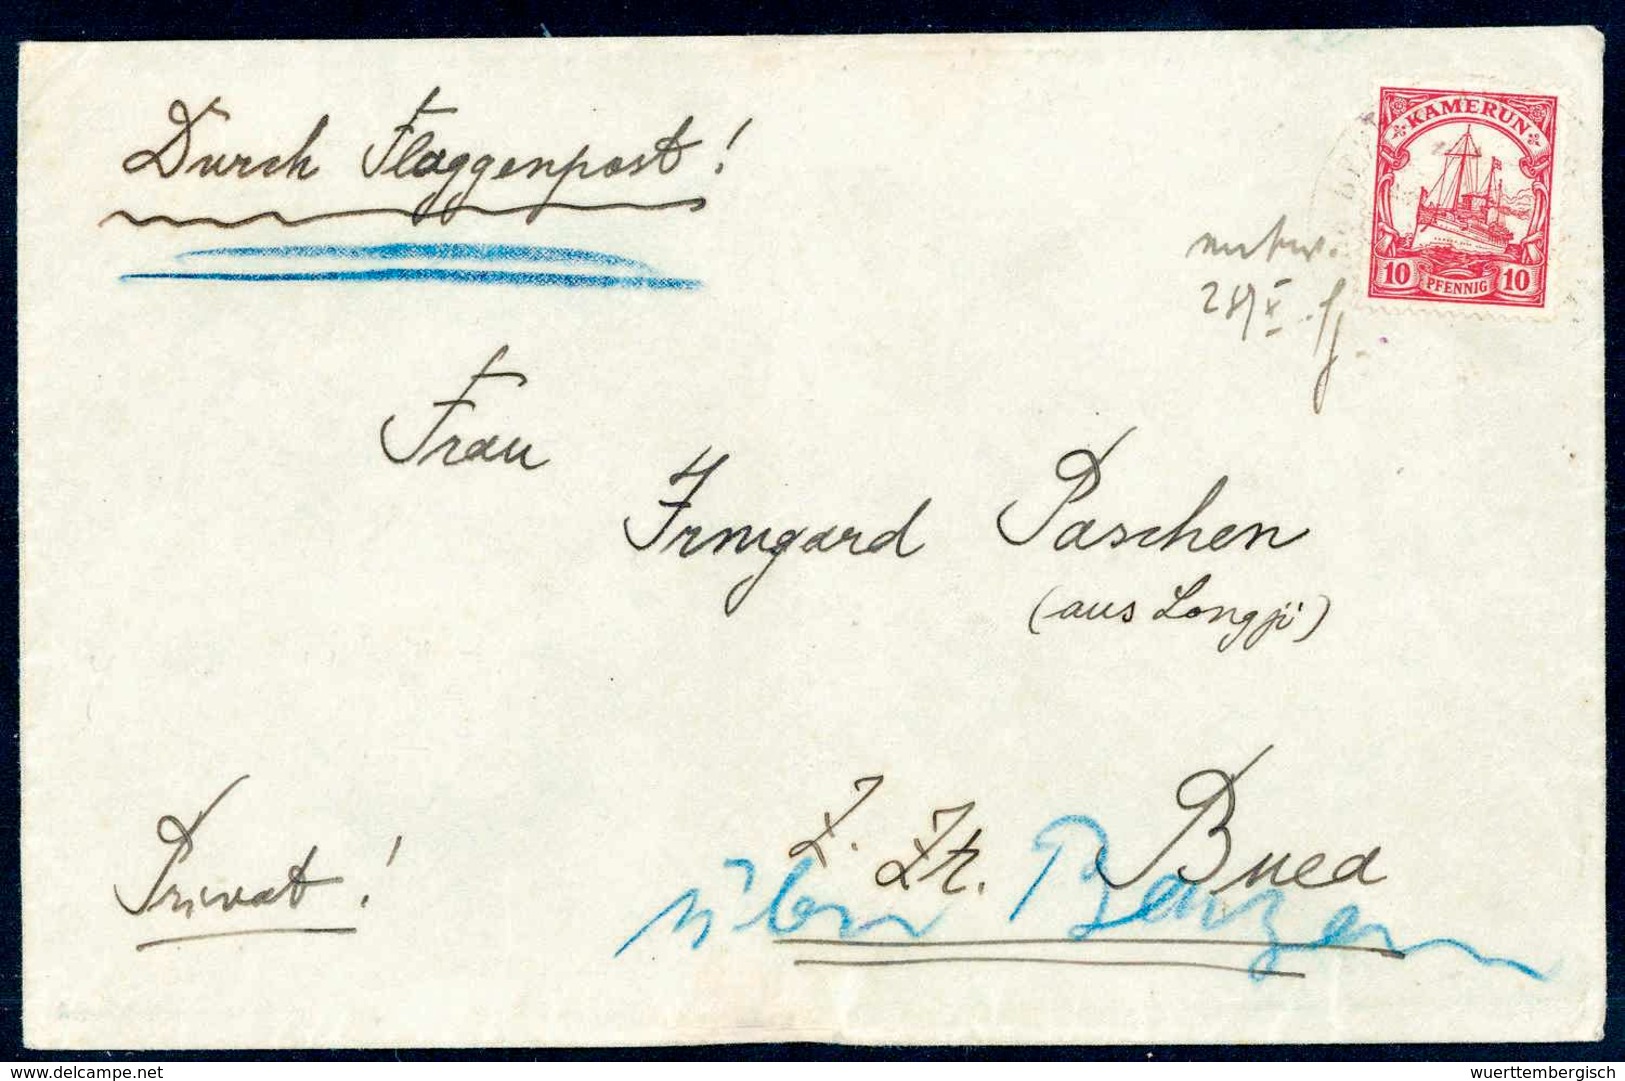 Durch Flaggenpost!
KAMERUN
10 PFENNIG 10
Frau
Irmgard Paschen
(aus Longji)
Privat!
Z. Zt. Buea
über
delcampe.net
wuerttembergisch